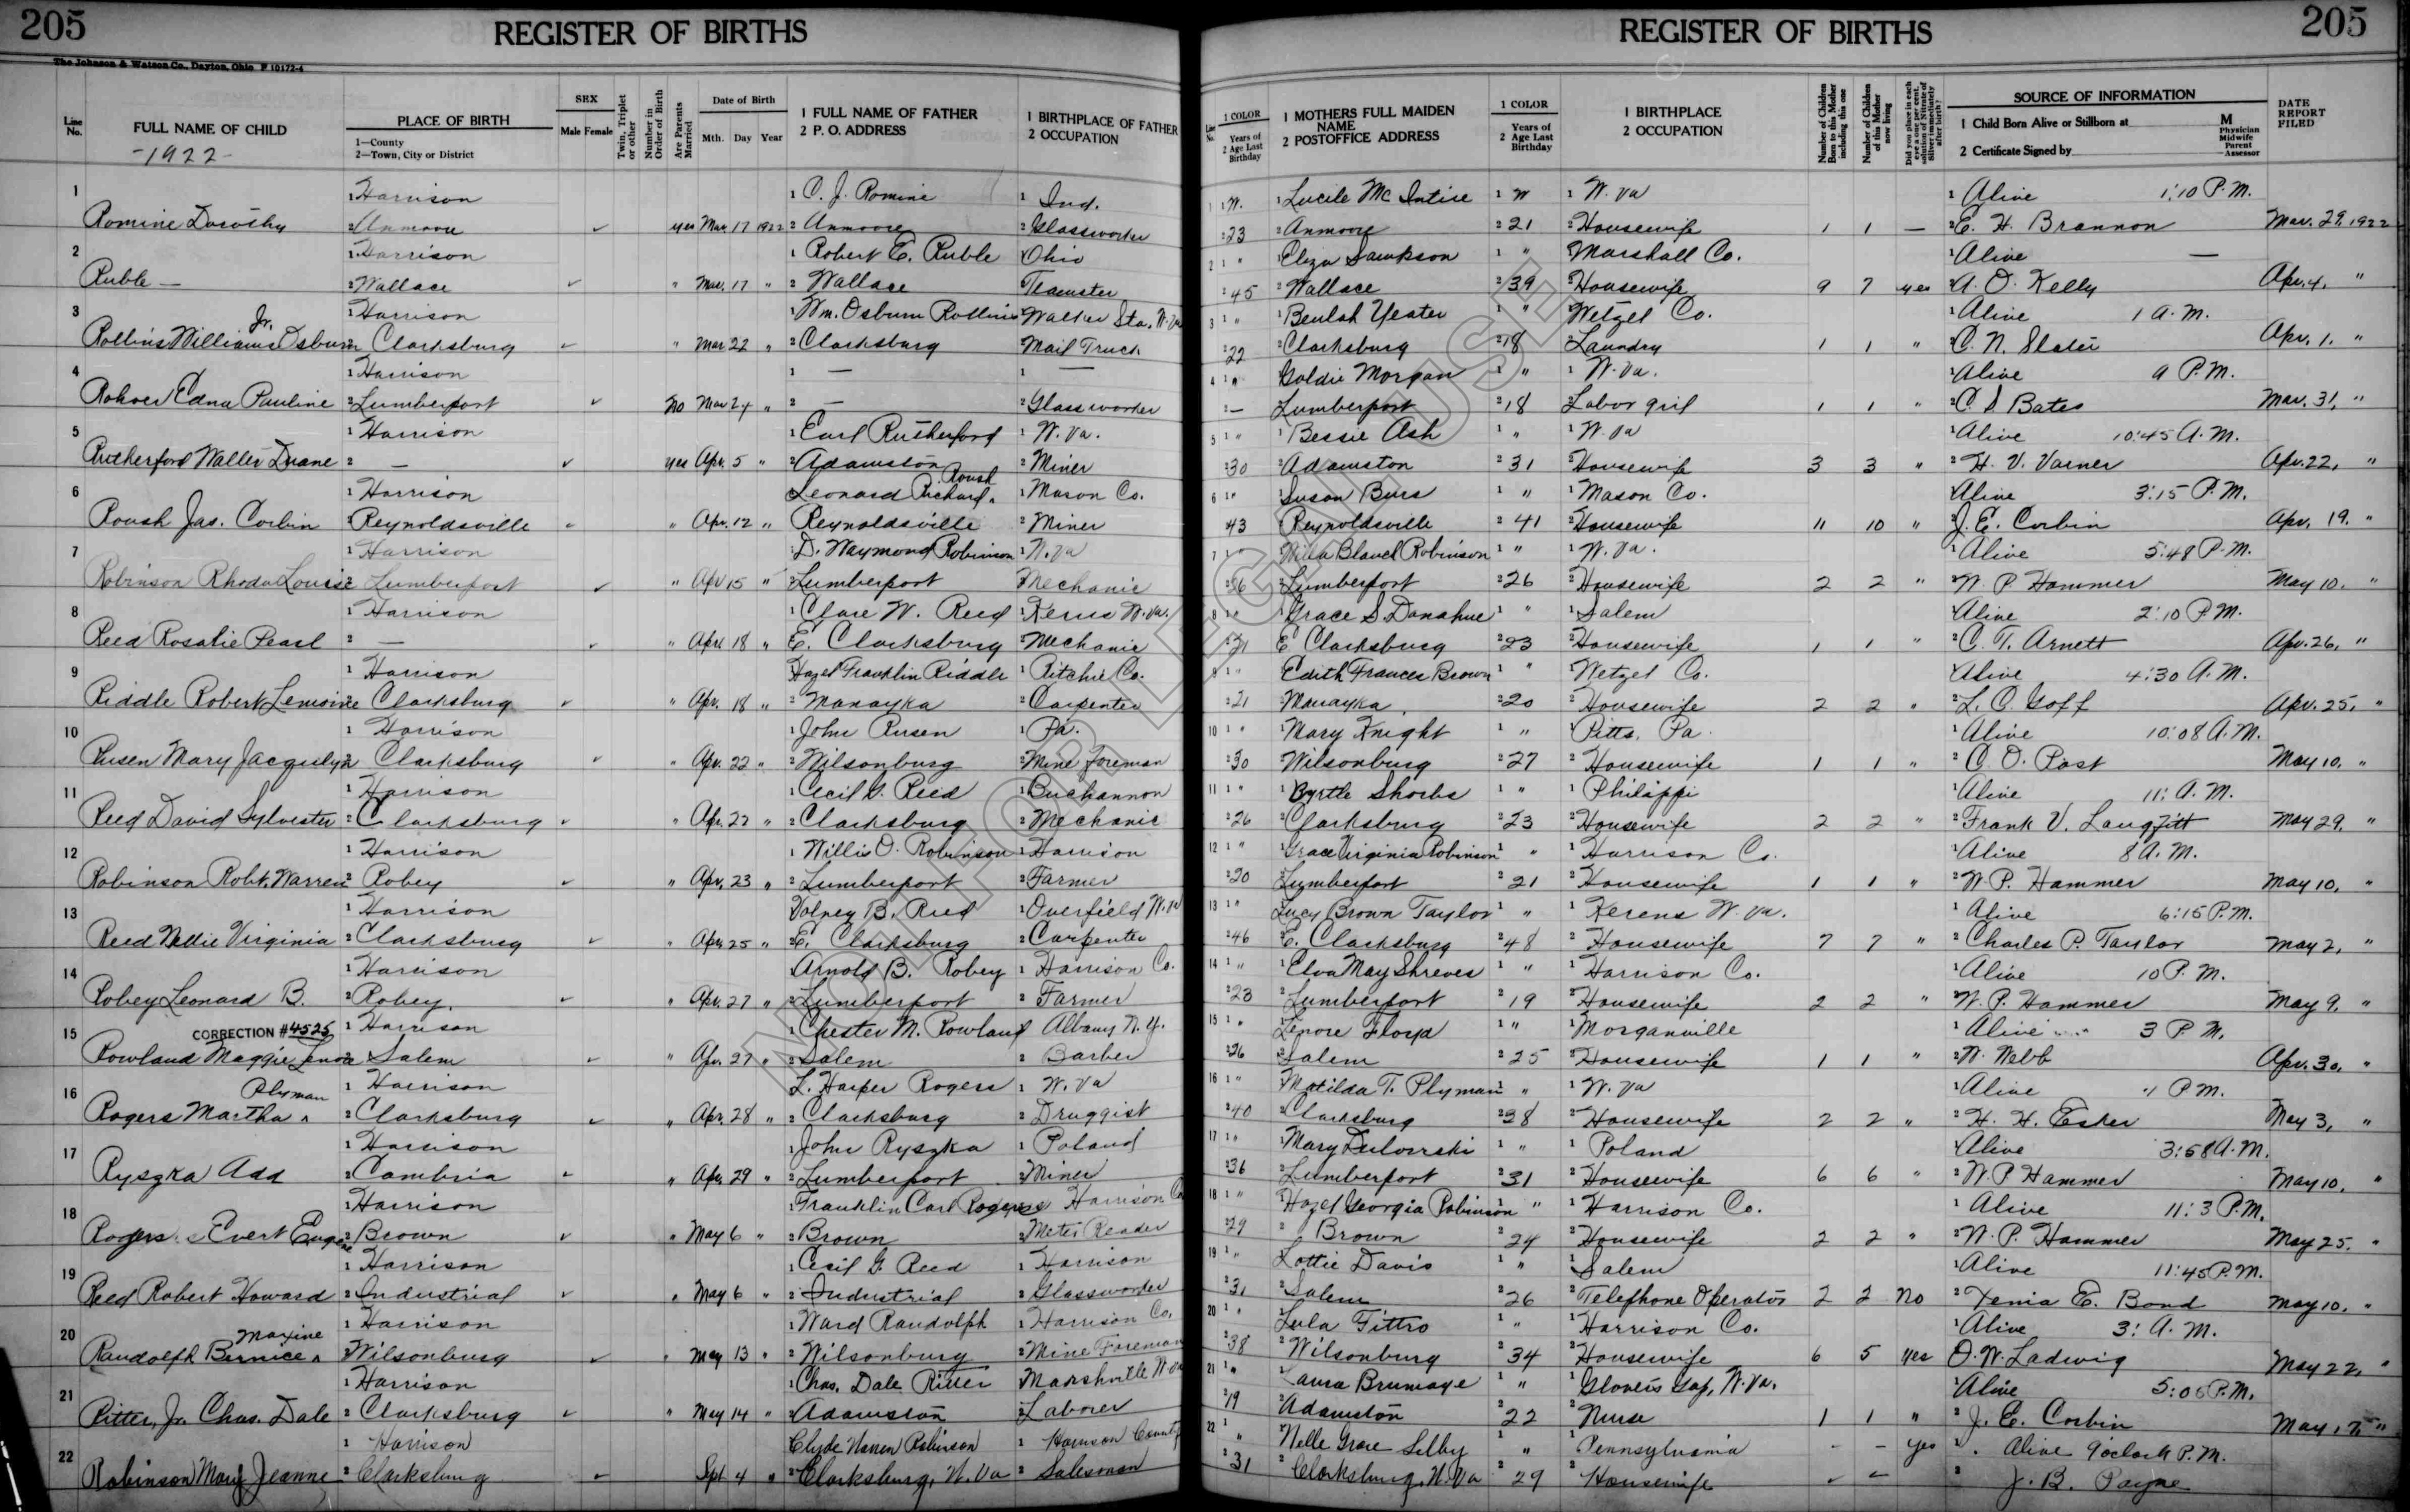 205 REGISTER OF BIRTHS
REGISTER OF BIRTHS 205
The Johnson & Watson Co., Dayton, Ohio F 10172-4
Line No. FULL NAME OF CHILD -1922- PLACE OF BIRTH 1—County 2—Town, City or District SEX Male Female Twin, Triplet or other Number in Order of Birth Are Parents Married Date of Birth Mth. Day Year 1 FULL NAME OF FATHER 2 P. O. ADDRESS 1 BIRTHPLACE OF FATHER 2 OCCUPATION
Line No. 1 COLOR 2 Years of Age Last Birthday 1 MOTHERS FULL MAIDEN NAME 2 POSTOFFICE ADDRESS 1 COLOR 2 Years of Age Last Birthday 1 BIRTHPLACE 2 OCCUPATION Number of Children Born to this Mother including this one Number of Children of this Mother now living Did you place in each eye a one per cent. solution of Nitrate of Silver immediately after birth? SOURCE OF INFORMATION 1 Child Born Alive or Stillborn at M 2 Certificate Signed by Physician Midwife Parent Assessor DATE REPORT FILED
1 1 Harrison 1 C. J. Romine 1 Ind. 1 1 W. 1 Lucile Mc Intire 1 W 1 W. Va 1 Alive 1:10 P.M.
Romine Dorothy 2 Anmoore ✓ yes Mar. 17 1922 2 Anmoore 2 Glassworker 2 23 2 Anmoore 2 21 2 Housewife 1 1 — 2 E. H. Brannon Mar. 29, 1922
2 1 Harrison 1 Robert E. Ruble 1 Ohio 2 1 " 1 Eliza Sampson 1 " 1 Marshall Co. 1 Alive —
Ruble — 2 Wallace ✓ " Mar. 17 " 2 Wallace 2 Teamster 2 45 2 Wallace 2 39 2 Housewife 9 7 yes 2 A. O. Kelly Apr. 4, "
3 Jr. 1 Harrison 1 Wm. Osburn Rollins 1 Walker Sta. W. Va 3 1 " 1 Beulah Yeater 1 " 1 Wetzel Co. 1 Alive 1 A.M.
Rollins Williams Osburn 2 Clarksburg ✓ " Mar 22 " 2 Clarksburg 2 Mail Truck 2 22 2 Clarksburg 2 18 2 Laundry 1 1 " 2 C. N. Slater Apr. 1. "
4 1 Harrison 1 — 1 — 4 1 " Goldie Morgan 1 " 1 W. Va. 1 Alive 9 P.M.
Rohver Edna Pauline 2 Lumberport ✓ No Mar 24 " 2 — 2 Glassworker 2 — 2 Lumberport 2 18 2 Labor gril 1 1 " 2 C. S. Bates Mar. 31, "
5 1 Harrison 1 Earl Rutherford 1 W. Va. 5 1 " 1 Bessie Ash 1 " 1 W. Va 1 Alive 10:45 A.M.
Rutherford Walter Duane 2 — ✓ yes Apr. 5 " 2 Adamston 2 Miner 2 30 2 Adamston 2 31 2 Housewife 3 3 " 2 H. V. Varner Apr. 22, "
6 1 Harrison Leonard Richard Roush 1 Mason Co. 6 1 " 1 Susan Buss 1 " 1 Mason Co. 1 Alive 3:15 P.M.
Roush Jas. Corbin 2 Reynoldsville ✓ " Apr. 12 " Reynoldsville 2 Miner 43 2 Reynoldsville 2 41 2 Housewife 11 10 " 2 J. E. Corbin Apr. 19. "
7 1 Harrison 1 D. Waymond Robinson 1 W. Va 7 1 " 1 Willa Blanch Robinson 1 " 1 W. Va. 1 Alive 5:48 P.M.
Robinson Rhoda Louise 2 Lumberport ✓ " Apr 15 " 2 Lumberport Mechanic 2 26 2 Lumberport 2 26 2 Housewife 2 2 " 2 W. P. Hammer May 10. "
8 1 Harrison 1 Clare W. Reed 1 Kerns W. Va. 8 1 " 1 Grace S. Donahue 1 " 1 Salem 1 Alive 2:10 P.M.
Reed Rosalie Pearl 2 — ✓ " Apr. 18 " 2 E. Clarksburg 2 Mechanic 2 21 2 E Clarksburg 2 23 2 Housewife 1 1 " 2 C. T. Arnett Apr. 26, "
9 1 Harrison Hazel Franklin Riddle 1 Ritchie Co. 9 1 " Edith Frances Brown 1 " Wetzel Co. 1 Alive 4:30 A.M.
Riddle Robert Lemoine 2 Clarksburg ✓ " Apr. 18 " 2 Manayka 2 Carpenter 2 21 2 Manayka 2 20 2 Housewife 2 2 " 2 L. O. Goff Apr. 25, "
10 1 Harrison 1 John Rusen 1 Pa. 10 1 " 1 Mary Knight 1 " 1 Pitts, Pa. 1 Alive 10:08 A.M.
Rusen Mary Jacqulyn 2 Clarksburg ✓ " Apr. 22 " 2 Wilsonburg 2 Mine Foreman 2 30 2 Wilsonburg 2 27 2 Housewife 1 1 " 2 C. O. Post May 10, "
11 1 Harrison 1 Cecil G. Reed 1 Buchannon 11 1 " 1 Byrtle Shorbs 1 " 1 Philippi 1 Alive 11: A.M.
Reed David Sylvester 2 Clarksburg ✓ " Apr. 22 " 2 Clarksburg 2 Mechanic 2 26 2 Clarksburg 2 23 2 Housewife 2 2 " 2 Frank V. Langfitt May 29, "
12 1 Harrison 1 Willis O. Robinson 1 Harrison 12 1 " 1 Grace Virginia Robinson 1 " 1 Harrison Co. 1 Alive 8 A.M.
Robinson Robt. Warren 2 Robey ✓ " Apr. 23 " 2 Lumberport 2 Farmer 2 20 2 Lumberport 2 21 2 Housewife 1 1 " 2 W. P. Hammer May 10, "
13 1 Harrison Volney B. Reed 1 Overfield W. Va 13 1 " Lucy Brown Taylor 1 " 1 Kerens W. Va. 1 Alive 6:15 P.M.
Reed Nellie Virginia 2 Clarksburg ✓ " Apr. 25 " 2 E. Clarksburg 2 Carpenter 2 46 2 E. Clarksburg 2 48 2 Housewife 7 7 " 2 Charles P. Taylor May 2, "
14 1 Harrison Arnold B. Robey 1 Harrison Co. 14 1 " 1 Elva May Shreves 1 " 1 Harrison Co. 1 Alive 10 P.M.
Robey Leonard B. 2 Robey. ✓ " Apr. 27 " 2 Lumberport 2 Farmer 2 23 2 Lumberport 2 19 2 Housewife 2 2 " 2 W. P. Hammer May 9. "
15 CORRECTION #4525 1 Harrison 1 Chester M. Rowland Albany N.Y. 15 1 " 1 Lenore Floyd 1 " 1 Morganville 1 Alive 3 P.M.
Rowland Maggie Lenora 2 Salem ✓ " Apr. 27 " 2 Salem 2 Barber 2 26 2 Salem 2 25 2 Housewife 1 1 " 2 W. Webb Apr. 30, "
16 Plyman 1 Harrison L. Harper Rogers 1 W. Va 16 1 " 1 Matilda T. Plyman 1 " 1 W. Va 1 Alive 4 P.M.
Rogers Martha ^ 2 Clarksburg ✓ " Apr. 28 " 2 Clarksburg 2 Druggist 2 40 2 Clarksburg 2 38 2 Housewife 2 2 " 2 H. H. Esker May 3, "
17 1 Harrison 1 John Ryszka 1 Poland 17 1 " 1 Mary 1 " 1 Poland 1 Alive 3:58 A.M.
Ryszka Add 2 Cambria ✓ " Apr. 29 " 2 Lumberport 2 Miner 2 36 2 Lumberport 2 31 2 Housewife 6 6 " 2 W. P. Hammer May 10, "
18 1 Harrison 1 Franklin Carl Rogers Harrison Co 18 1 " 1 Hazel Georgia Robinson " 1 Harrison Co. 1 Alive 11:3 P.M.
Rogers Evert Eugene 2 Brown ✓ " May 6 " 2 Brown 2 Meter Reader 2 29 2 Brown 2 24 2 Housewife 2 2 " 2 W. P. Hammer May 25. "
19 1 Harrison 1 Cecil G. Reed 1 Harrison 19 1 " Lottie Davis 1 " 1 Salem 1 Alive 11:45 P.M.
Reed Robert Howard 2 Industrial ✓ " May 6 " 2 Industrial 2 Glassworker 2 31 2 Salem 2 26 2 Telephone Operator 2 2 No 2 Xenia E. Bond May 10. "
20 Maxine 1 Harrison 1 Ward Randolph 1 Harrison Co. 20 1 " Lula Fittro 1 " 1 Harrison Co. 1 Alive 3: A.M.
Randolph Bernice ^ 2 Wilsonburg ✓ " May 13 " 2 Wilsonburg 2 Mine Foreman 2 38 2 Wilsonburg 2 34 2 Housewife 6 5 yes O. W. Ladwig May 22, "
21 1 Harrison 1 Chas. Dale Ritter Marshville W. Va 21 1 " Laura Brumage 1 " 1 Glovers Gap, W. Va. 1 Alive 5:05 P.M.
Ritter, Jr. Chas. Dale 2 Clarksburg ✓ " May 14 " 2 Adamston 2 Laborer 2 19 2 Adamston 2 22 2 Nurse 1 1 " 2 J. E. Corbin May 17, "
22 1 Harrison Clyde Warren Robinson 1 Harrison County 22 1 " 1 Nelle Grace Selby 1 " 1 Pennsylvania - - yes 1 Alive 9 o'clock P.M.
Robinson Mary Jeanne 2 Clarksburg ✓ Spt 4 " 2 Clarksburg, W. Va 2 Salesman 2 31 2 Clarksburg, W. Va 2 29 2 Housewife 2 J. B. Payne
NOT FOR LEGAL USE